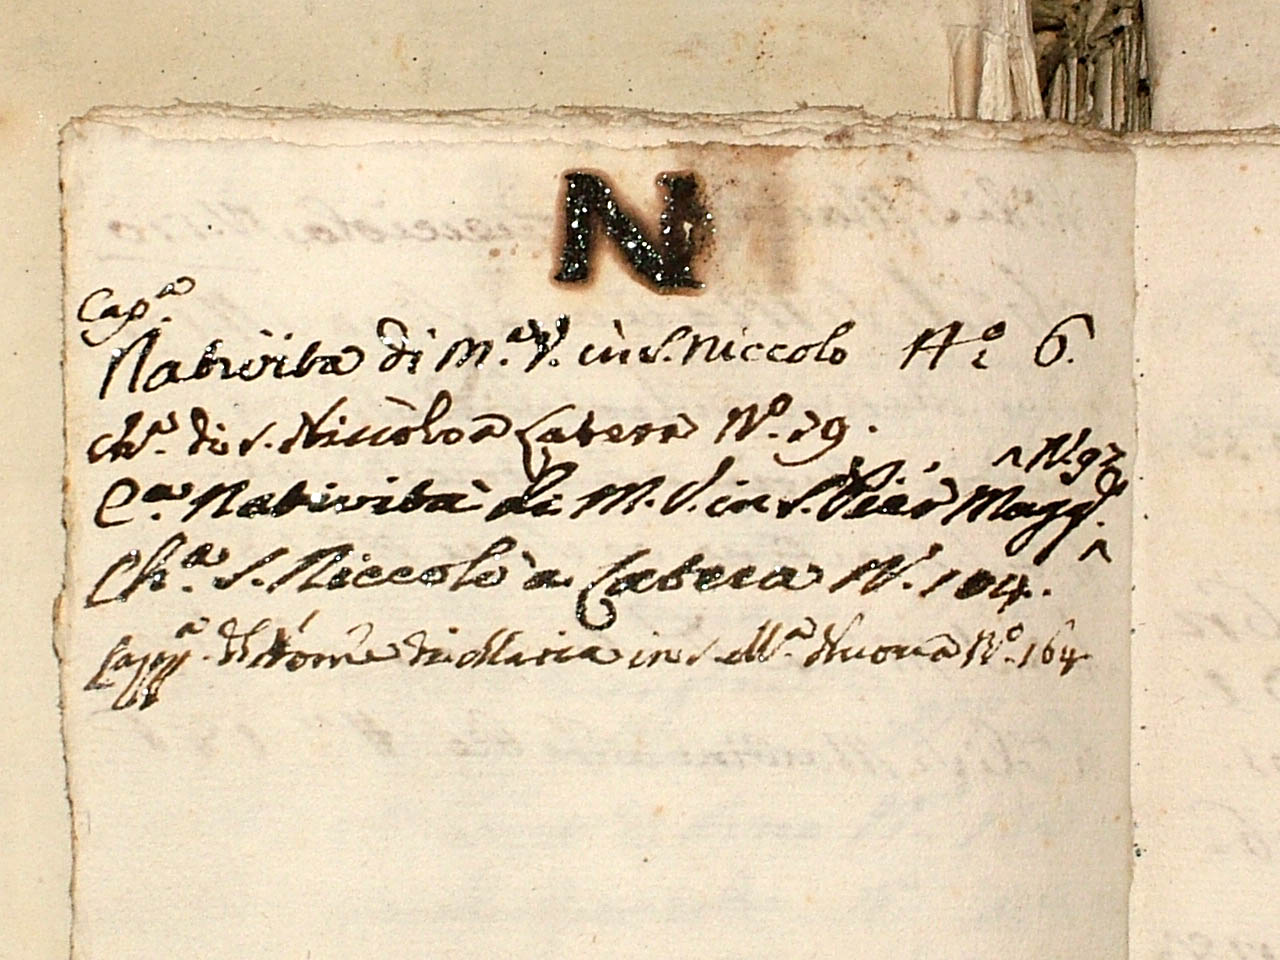 N
Cap.ª
Natività di M.ª V. in S. Niccolo N.º 6.
Ch.ª di S. Niccolò a Latera N.º 29.
^ N. 97
C.ª Natività di M. V. in S. Pier Magg.
Ch.ª S. Niccolò a Latera N. 104.
Capp.ª del Nome di Maria in S. M.ª Nuova N.º 164